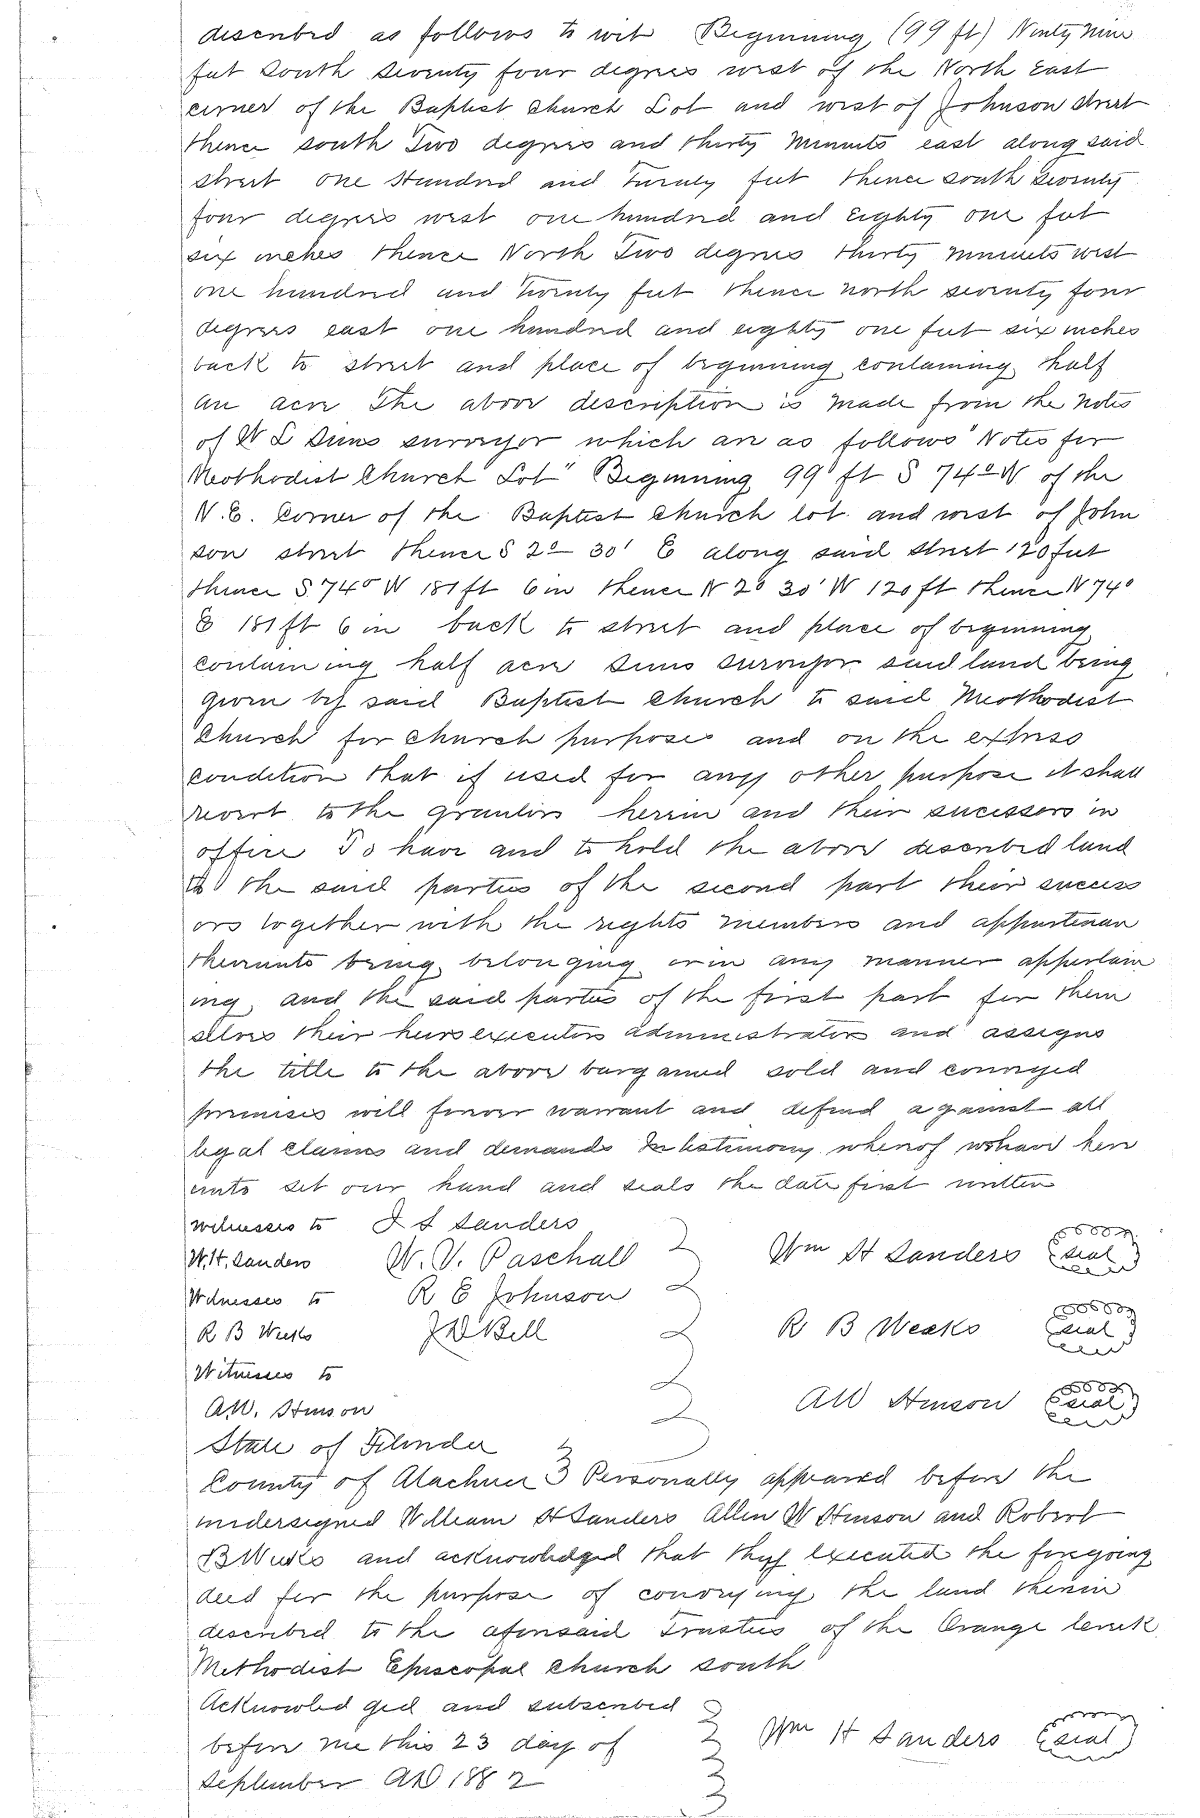 described as follows to wit Beginning (99 ft) Ninty Nine
feet South Seventy four degrees west of the North East
corner of the Baptist Church Lot and west of Johnson street
thence south Two degrees and thirty Minuits east along said
street One Hundred and Twenty feet thence south Seventy
four degrees west one hundred and Eighty one feet
six inches thence North Two degrees thirty minuets west
one hundred and twenty feet thence north seventy four
degrees east one hundred and eighty one feet six inches
back to street and place of beginning containing half
an acre The above description is made from the Notes
of W L Sims surveyor which are as follows "Notes for
Meothodist Church Lot" Beginning 99 ft S 74° W of the
N.E. Corner of the Baptist Church lot and west of John
son street thence S 2° 30' E along said street 120 feet
thence S 74° W 181 ft 6 in thence N 2° 30' W 120 ft thence N 74°
E 181 ft 6 in back to street and place of beginning
containing half acre Sims Surveyor said land being
given by said Baptist Church to said Meothodist
Church for church purposes and on the express
condition that if used for any other purpose it shall
revert to the grantors herein and their sucessors in
office To have and to hold the above described land
to the said parties of the second part their success
ors together with the rights members and appurtenan
thereunto being belonging or in any manner appertain
ing and the said parties of the first part for them
selves their heirs executors administrators and assigns
the title to the above bargained sold and conveyed
premises will forever warrant and defend against all
legal claims and demands In testimony whereof we have here
unto set our hand and seals the date first written
Witnesses to J S Sanders
W.H. Sanders W. V. Paschall Wm H Sanders seal
Witnesses to R E Johnson
R B Weeks J W Bell R B Weeks seal
Witnesses to
A.W. Hinson AW Hinson seal
State of Florida
County of Alachua Personally appeared before the
undersigned William H Sanders Allen W Hinson and Robert
B Weeks and acknowledged that they executed the foregoing
deed for the purpose of conveying the land therein
described to the aforesaid Trustees of the Orange Creek
Methodist Episcopal Church South
Acknowledged and subscribed
before me this 23 day of Wm H Sanders seal
September AD 1882